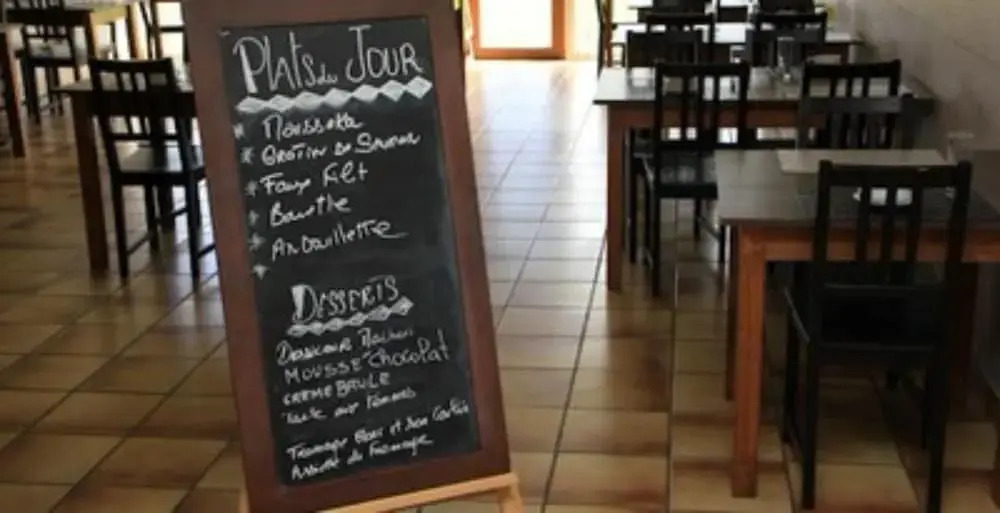 Plats du JOUR
* Moussaka
* GRATIN DE
* Faux Filet
* Bavette
* ANDouilleTTe
*
DESSERTS
Douceur
MOUSSE CHOCOLAT
CREME BRULE
Tarte aux Pommes
Fromage Blanc et son Coulis
Assiette de Fromage